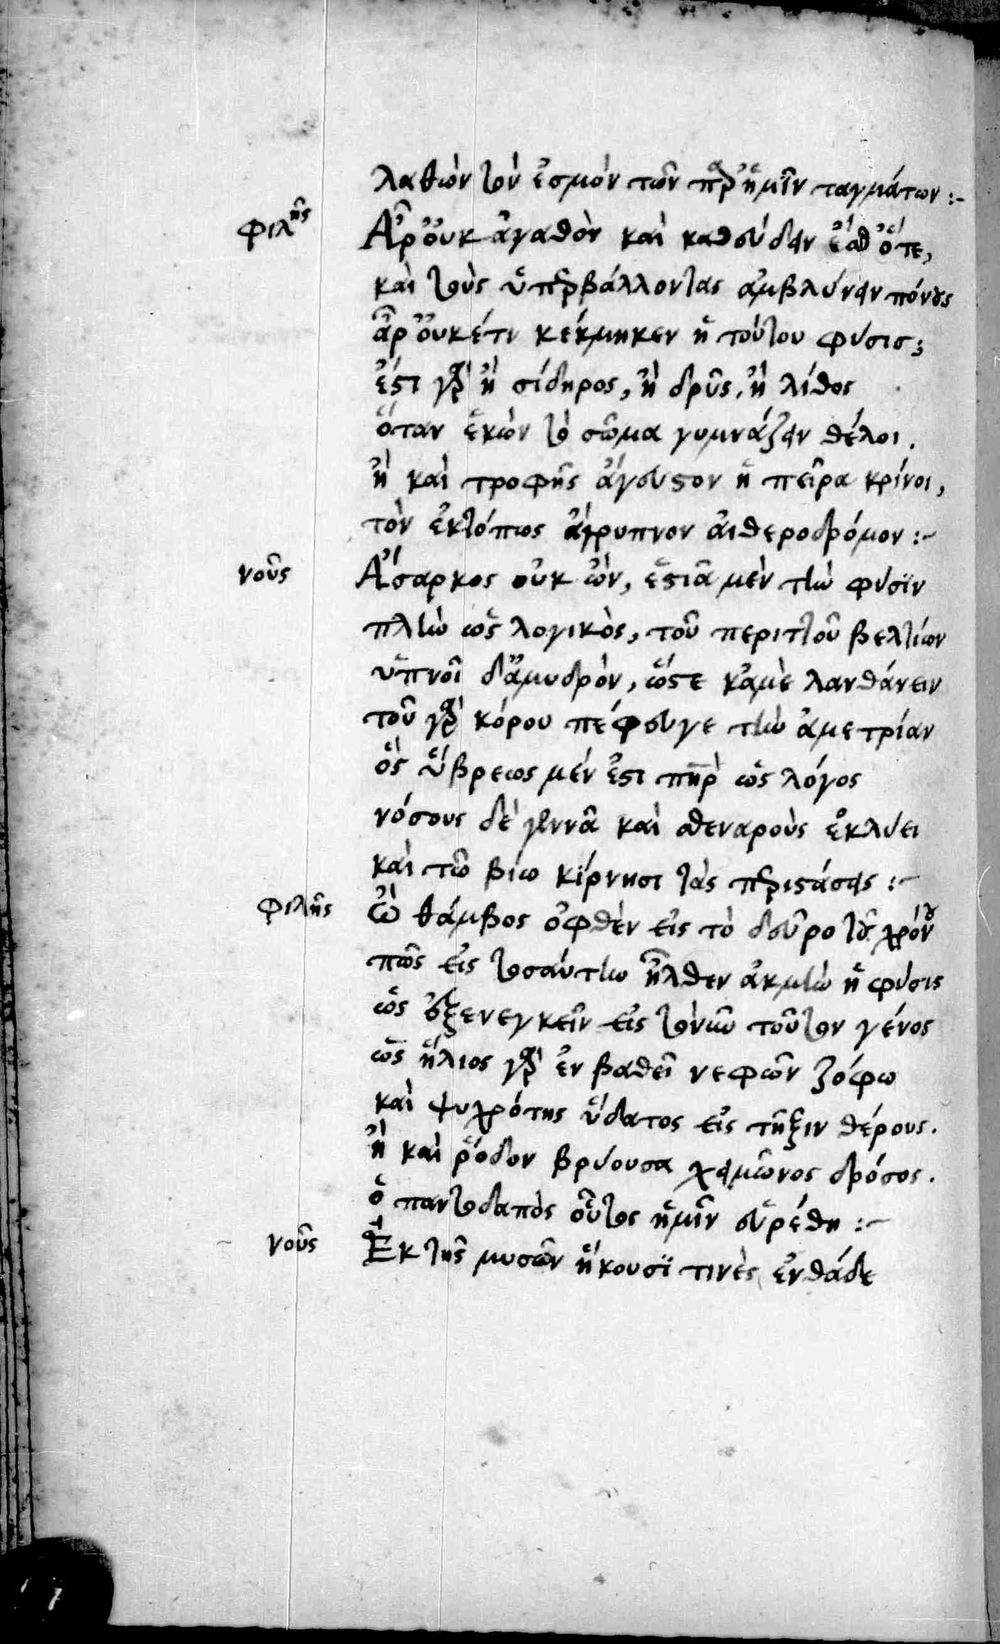 λαθὼν τὸν ἑσμὸν τῶν παρ' ἡμῖν ταγμάτων :~
φιλῆς Ἆρ' οὐκ ἀγαθὸν καὶ καθεύδειν ἔσθ' ὅτε,
καὶ τοὺς ὑπερβάλλοντας ἀμβλύνειν πόνους
ἆρ' οὐκέτι κέκμηκεν ἡ τούτου φύσις;
ἔστι γὰρ ἢ σίδηρος, ἢ δρῦς, ἢ λίθος
ὅταν ἑκὼν τὸ σῶμα γυμνάζειν θέλοι.
ἢ καὶ τροφῆς ἄγευστον ἡ πεῖρα κρίνοι,
τὸν ἐκτόπως ἄγρυπνον αἰθεροδρόμον :~
νοῦς Ἄσαρκος οὐκ ὢν, ἑστιᾶ μὲν τὴν φύσϊν
πλὴν ὡς λογικὸς, τοῦ περιττοῦ βελτίων
ὑπνοῖ δ' ἀμυδρὸν, ὥστε κἀμὲ λανθάνειν
τοῦ γὰρ κόρου πέφευγε τὴν ἀμετρίαν
ὃς ὕβρεως μέν ἐστι πατὴρ ὡς λόγος
νόσους δὲ γεννᾶ καὶ σθεναροὺς ἐκλύει
καὶ τῶ βίω κϊρνησι τὰς περιστάσεις :~
φιλῆς Ὢ θάμβος ὀφθὲν εἰς τὸ δεῦρο τοῦ χρόνου
πῶς εἰς τοσαύτην ἦλθεν ἀκμὴν ἡ φύσις
ὡς ἐξενεγκεῖν εἰς τὸν νῦν τοῦτον γένος
ὡς ἥλιος γὰρ ἐν βαθεῖ νεφῶν ζόφω
καὶ ψυχρότης ὕδατος εἰς τῆξιν θέρους.
ἢ καὶ ῥόδον βρύουσα χειμῶνος δρόσος.
ὁ παντοδαπὸς οὗτος ἡμῖν εὑρέθη :~
νοῦς Ἐκ τῆς μυσῶν ἥκουσϊ τινὲς ἐνθάδε